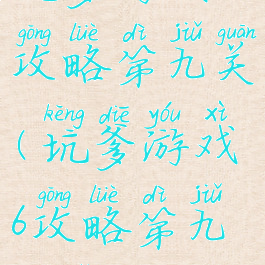 gōng lüè dì jiǔ guān
攻略第九关
kēng diē yóu xì
(坑爹游戏
gōng lüè dì jiǔ
6攻略第九